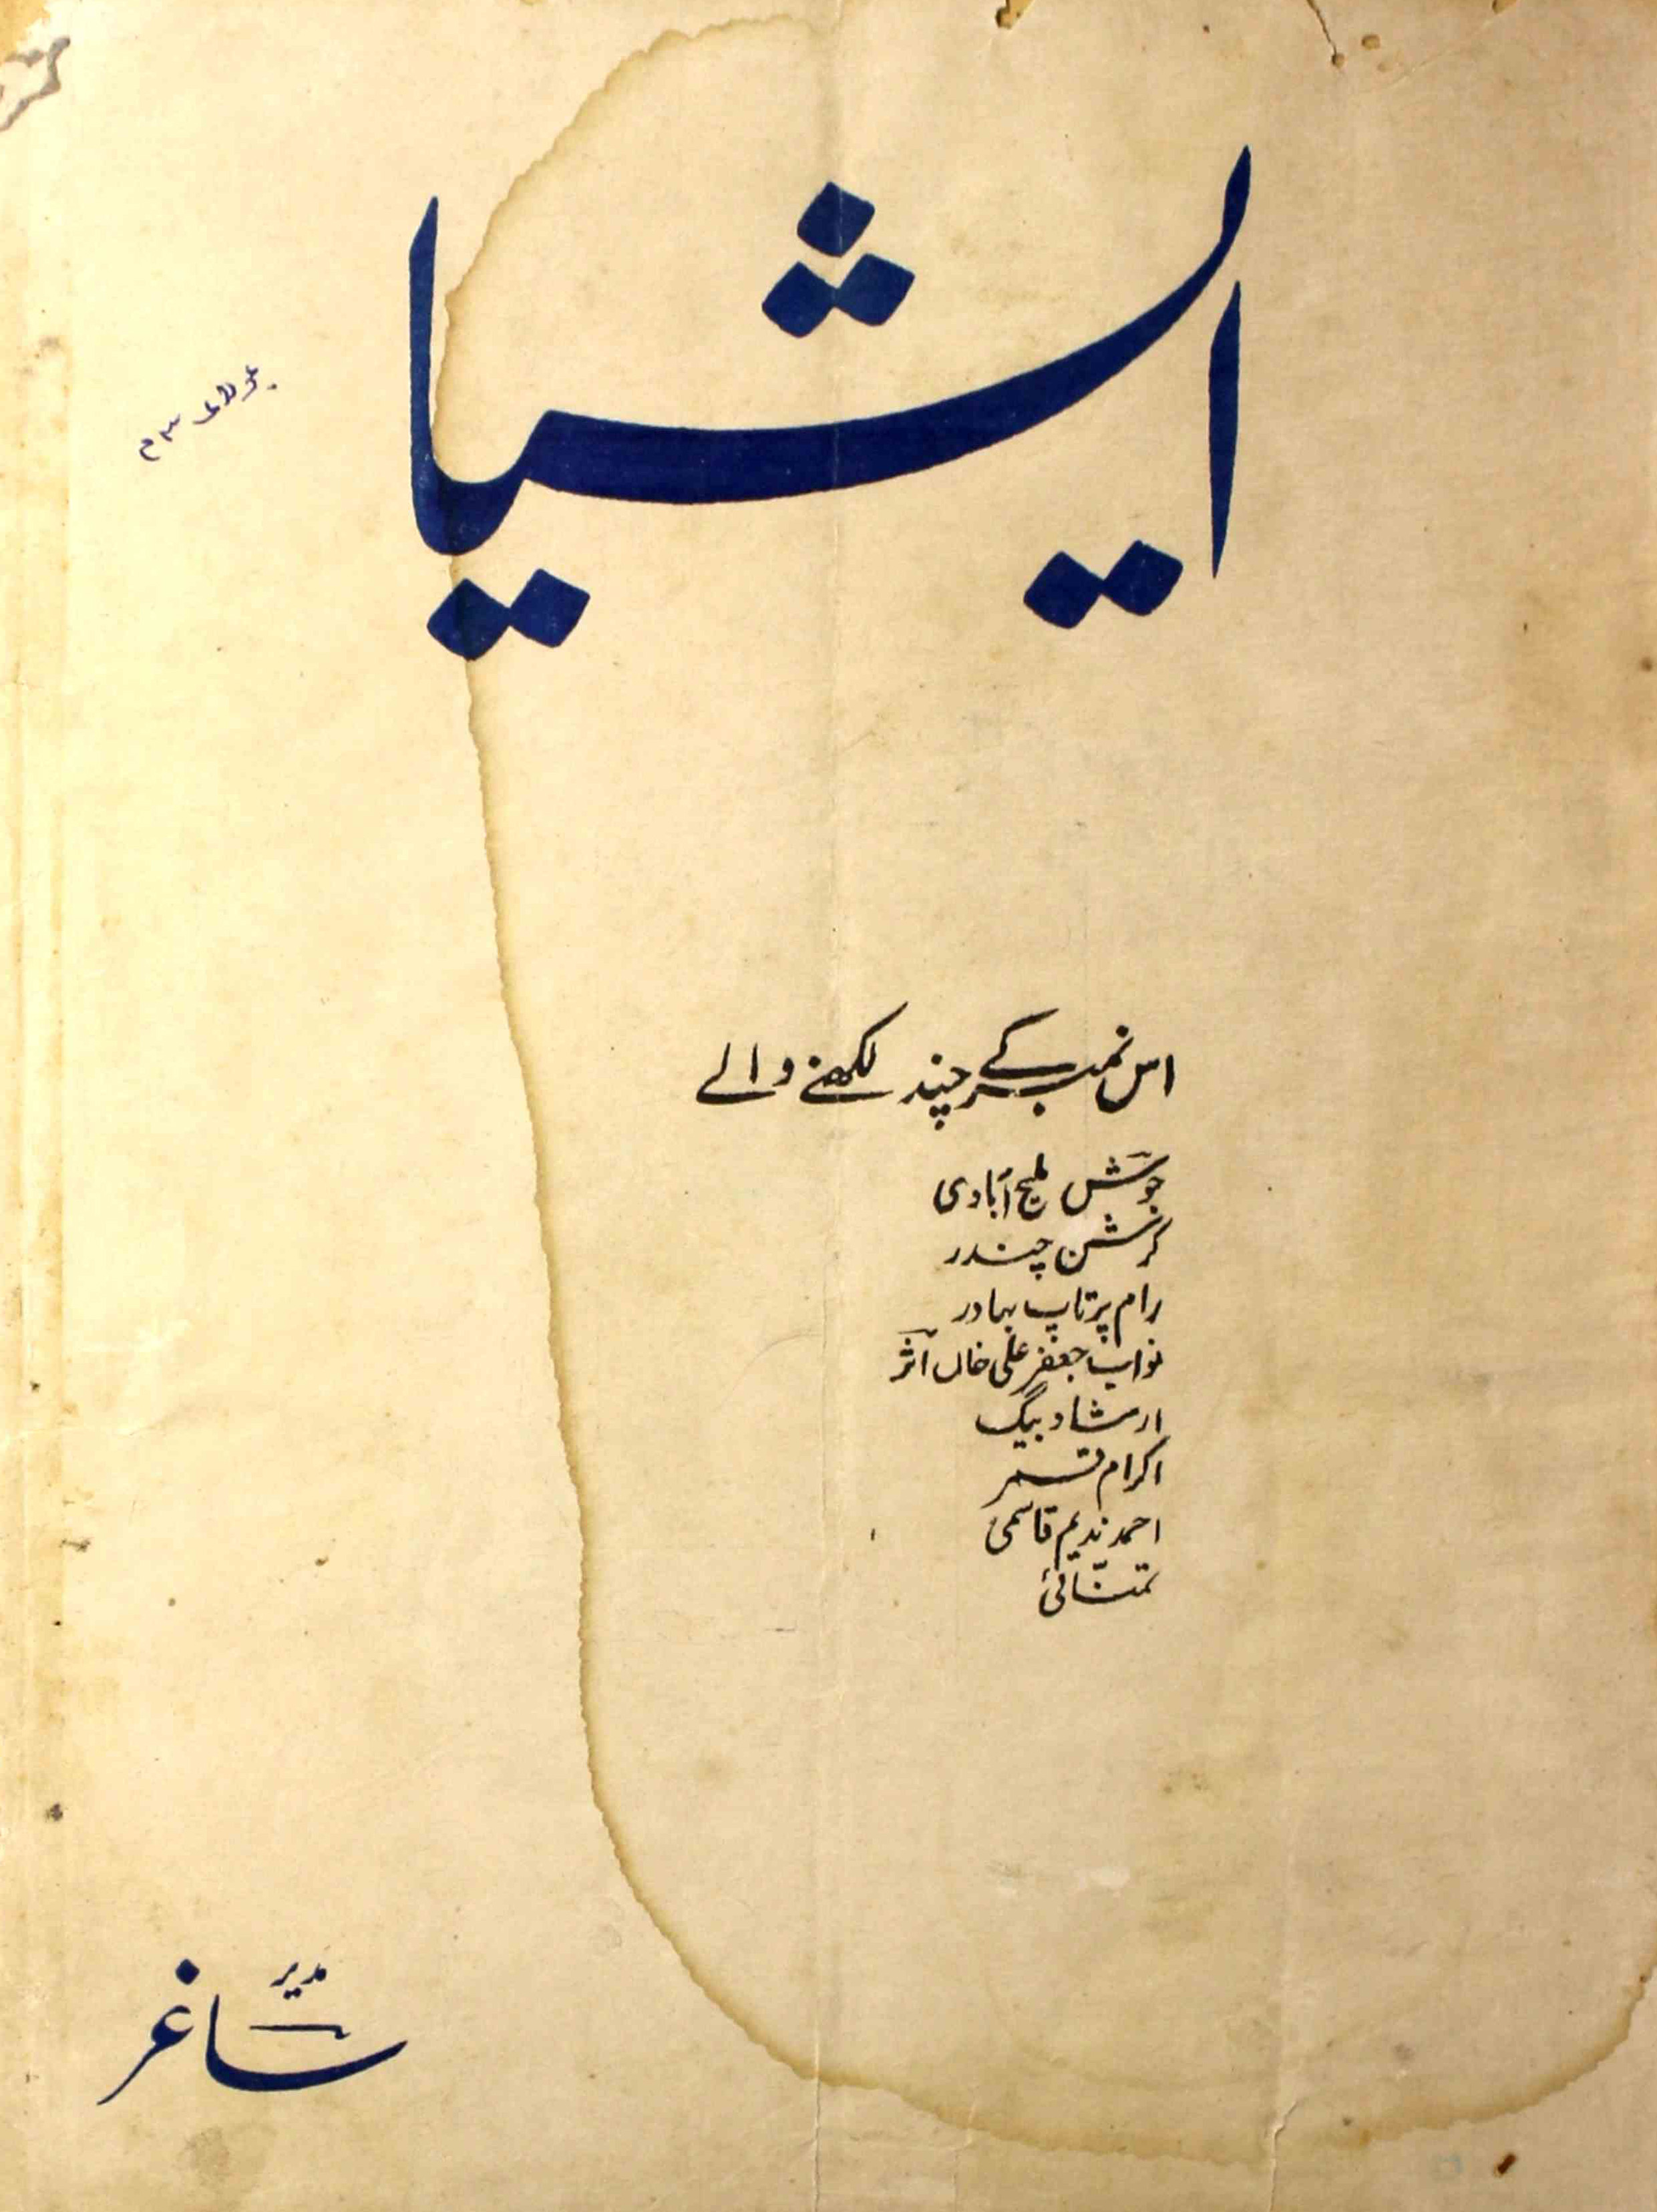 ایشیا
جولائی ۴۳ م
اس نمبر کے چند لکھنے والے
جوش ملیح آبادی
کرشن چندر
رام پرتاپ بہادر
نواب جعفر علی خاں اثر
ارشاد بیگ
اکرام قمر
احمد ندیم قاسمی
تمنائی
مدیر
ساغر